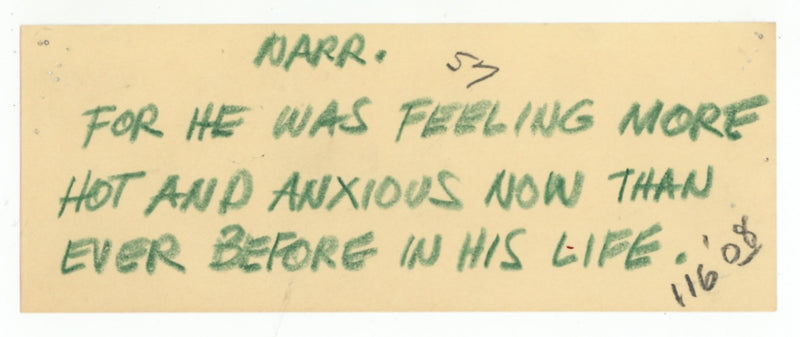 NARR. 57
FOR HE WAS FEELING MORE
HOT AND ANXIOUS NOW THAN
EVER BEFORE IN HIS LIFE.
116'08